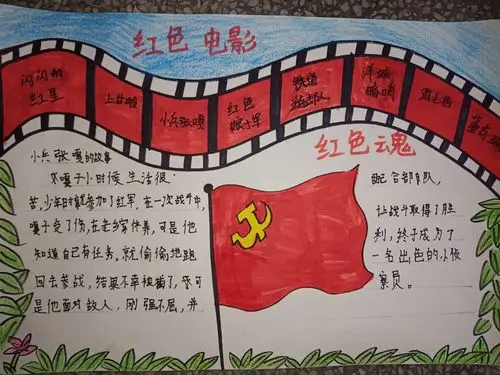 红色 电影
闪闪的
红星
上甘岭
小兵张嘎
红色
娘子军
铁道
游击队
洋城
暗哨
红色云魂
小兵张嘎的故事
嘎子小时候生活很
苦,少年时就参加了红军,在一次战斗中,
嘎子受了伤,在老乡家休养,可是他
知道自己有任务,就偷偷地跑
回去参战,结果不幸被捕了,
是他面对敌人,刚强不屈,并
配合部队,
让战斗取得了胜
利,终于成为了
一名出色的小侦
察员。